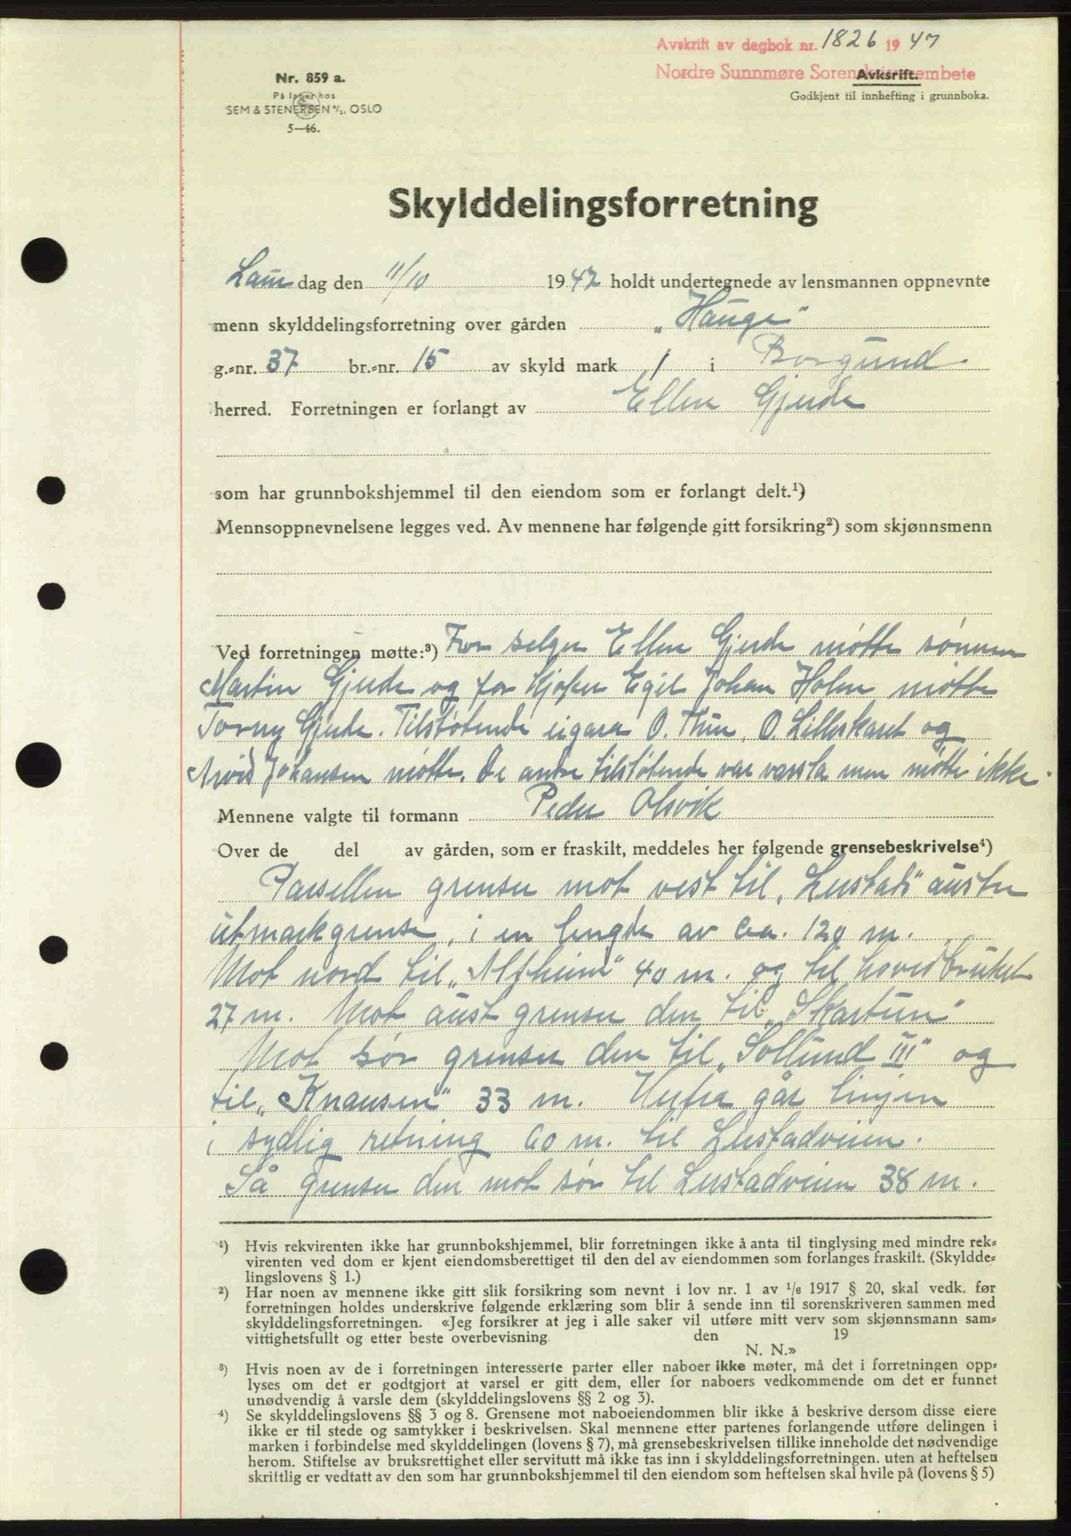 Avskrift av dagbok nr. 1826 1947
Nordre Sunnmøre Sorenskriverembete
Avksrift.
Godkjent til innhefting i grunnboka.
Nr. 859 a.
På lager hos
SEM & STENERSEN A/S, OSLO
5—46.
Skylddelingsforretning
Laur dag den 11/10 1947 holdt undertegnede av lensmannen oppnevnte
menn skylddelingsforretning over gården „Hauge“
g.-nr. 37 br.-nr. 15 av skyld mark 1 i Borgund
herred. Forretningen er forlangt av Ellen Gjerde
som har grunnbokshjemmel til den eiendom som er forlangt delt.¹)
Mennsoppnevnelsene legges ved. Av mennene har følgende gitt forsikring²) som skjønnsmenn
Ved forretningen møtte:³) For selger Ellen Gjerde møtte sønnen
Martin Gjerde og for kjøper Egil Johan Holm møtte
Torny Gjerde. Tilstøtende eigara O. Thun, O. Lilleskaret og
Arvid Johansen møtte. De andre tilstøtende var varsla men møtte ikke.
Mennene valgte til formann Peder Olsvik
Over de del av gården, som er fraskilt, meddeles her følgende grensebeskrivelse⁴)
Parsellen grenser mot vest til „Lerstads“ austre
utmarkgrense, i en lengde av ca. 120 m.
Mot nord til „Alfheim“ 40 m. og til hovedbruket
27 m. Mot aust grenser den til „Skartun“
Mot sør grenser den til „Sollund III“ og
til „Knausen“ 33 m. Herfra går linjen
i sydlig retning 60 m. til Lerstadveien.
Så grenser den mot sør til Lerstadveien 38 m.
¹) Hvis rekvirenten ikke har grunnbokshjemmel, blir forretningen ikke å anta til tinglysing med mindre rek-
virenten ved dom er kjent eiendomsberettiget til den del av eiendommen som forlanges fraskilt. (Skyldde-
lingslovens § 1.)
²) Har noen av mennene ikke gitt slik forsikring som nevnt i lov nr. 1 av 1/6 1917 § 20, skal vedk. før
forretningen holdes underskrive følgende erklæring som blir å sende inn til sorenskriveren sammen med
skylddelingsforretningen. «Jeg forsikrer at jeg i alle saker vil utføre mitt verv som skjønnsmann sam-
vittighetsfullt og etter beste overbevisning den 19
N. N.»
³) Hvis noen av de i forretningen interesserte parter eller naboer ikke møter, må det i forretningen opp-
lyses om det er godtgjort at varsel er gitt dem, eller for naboers vedkommende om det er funnet
unødvendig å varsle dem (skylddelingslovens §§ 2 og 3).
⁴) Se skylddelingslovens §§ 3 og 8. Grensene mot naboeiendommen blir ikke å beskrive dersom disse eiere
ikke er til stede og samtykker i beskrivelsen. Skal mennene etter partenes forlangende utføre delingen i
marken i forbindelse med skylddelingen (lovens § 7), må grensebeskrivelsen tillike inneholde det nødvendige
herom. Stiftelse av bruksrettighet eller servitutt må ikke tas inn i skylddelingsforretningen. uten at heftelsen
skriftlig er vedtatt av den som har grunnbokshjemmel til den eiendom som heftelsen skal hvile på (lovens § 5)